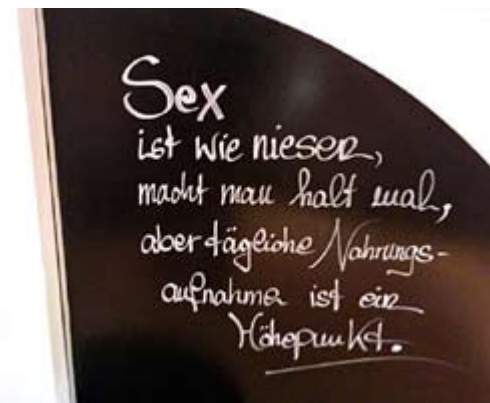 Sex
ist wie niesen,
macht man halt mal,
aber tägliche Nahrungs-
aufnahme ist ein
Höhepunkt.